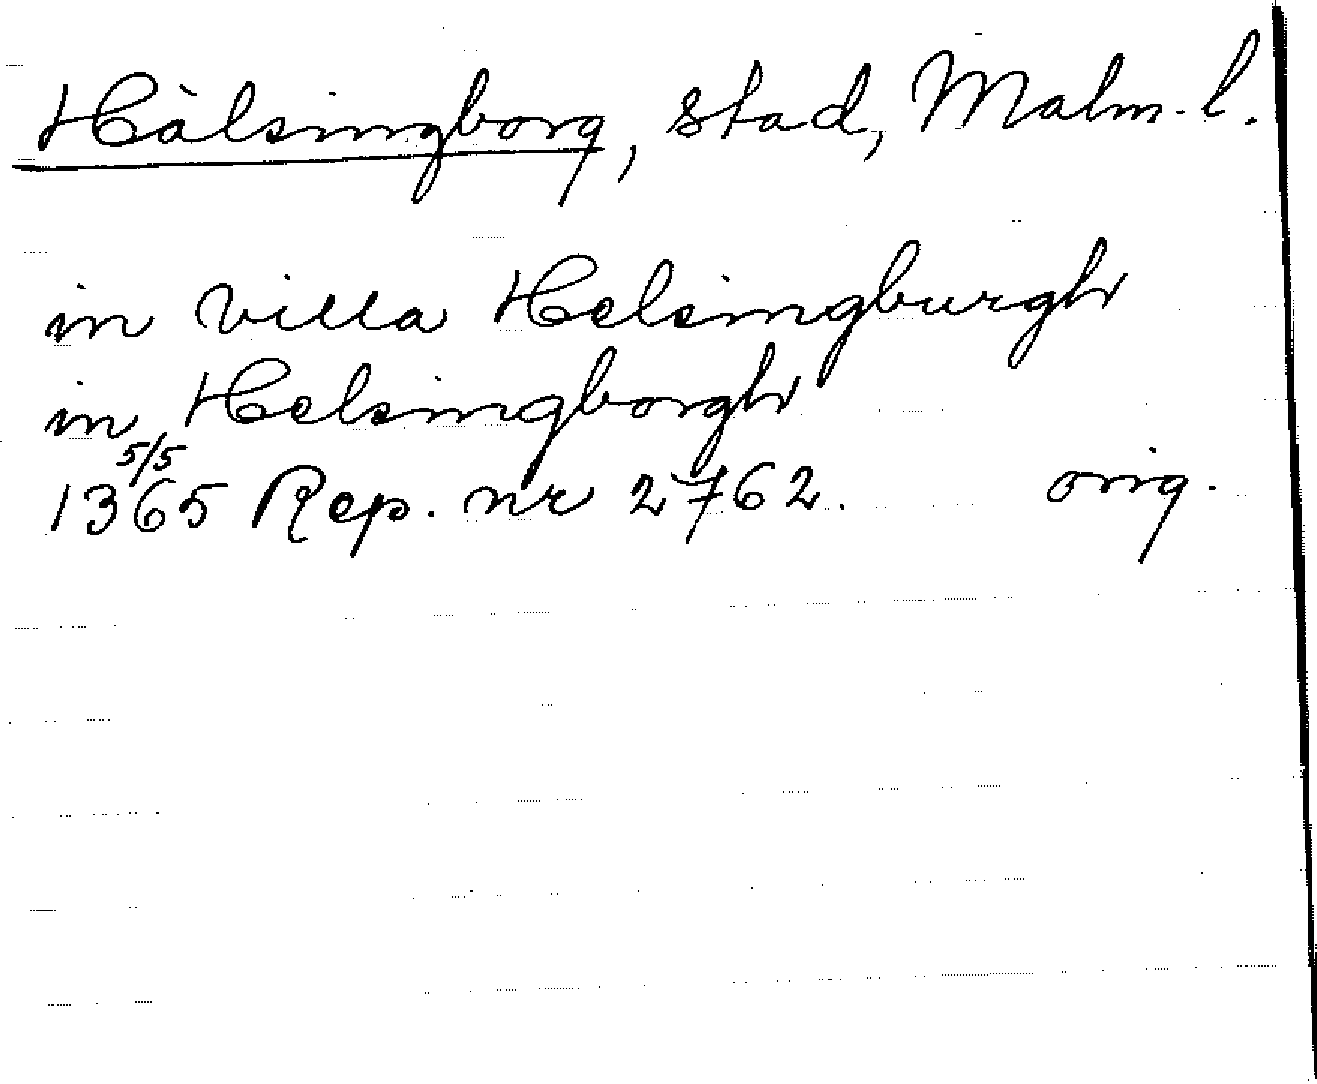 Hälsingborg, stad, Malm. l.
in villa Helsingburgh
in Helsingborgh
5/5
1365 Rep. nr 2762. orig.